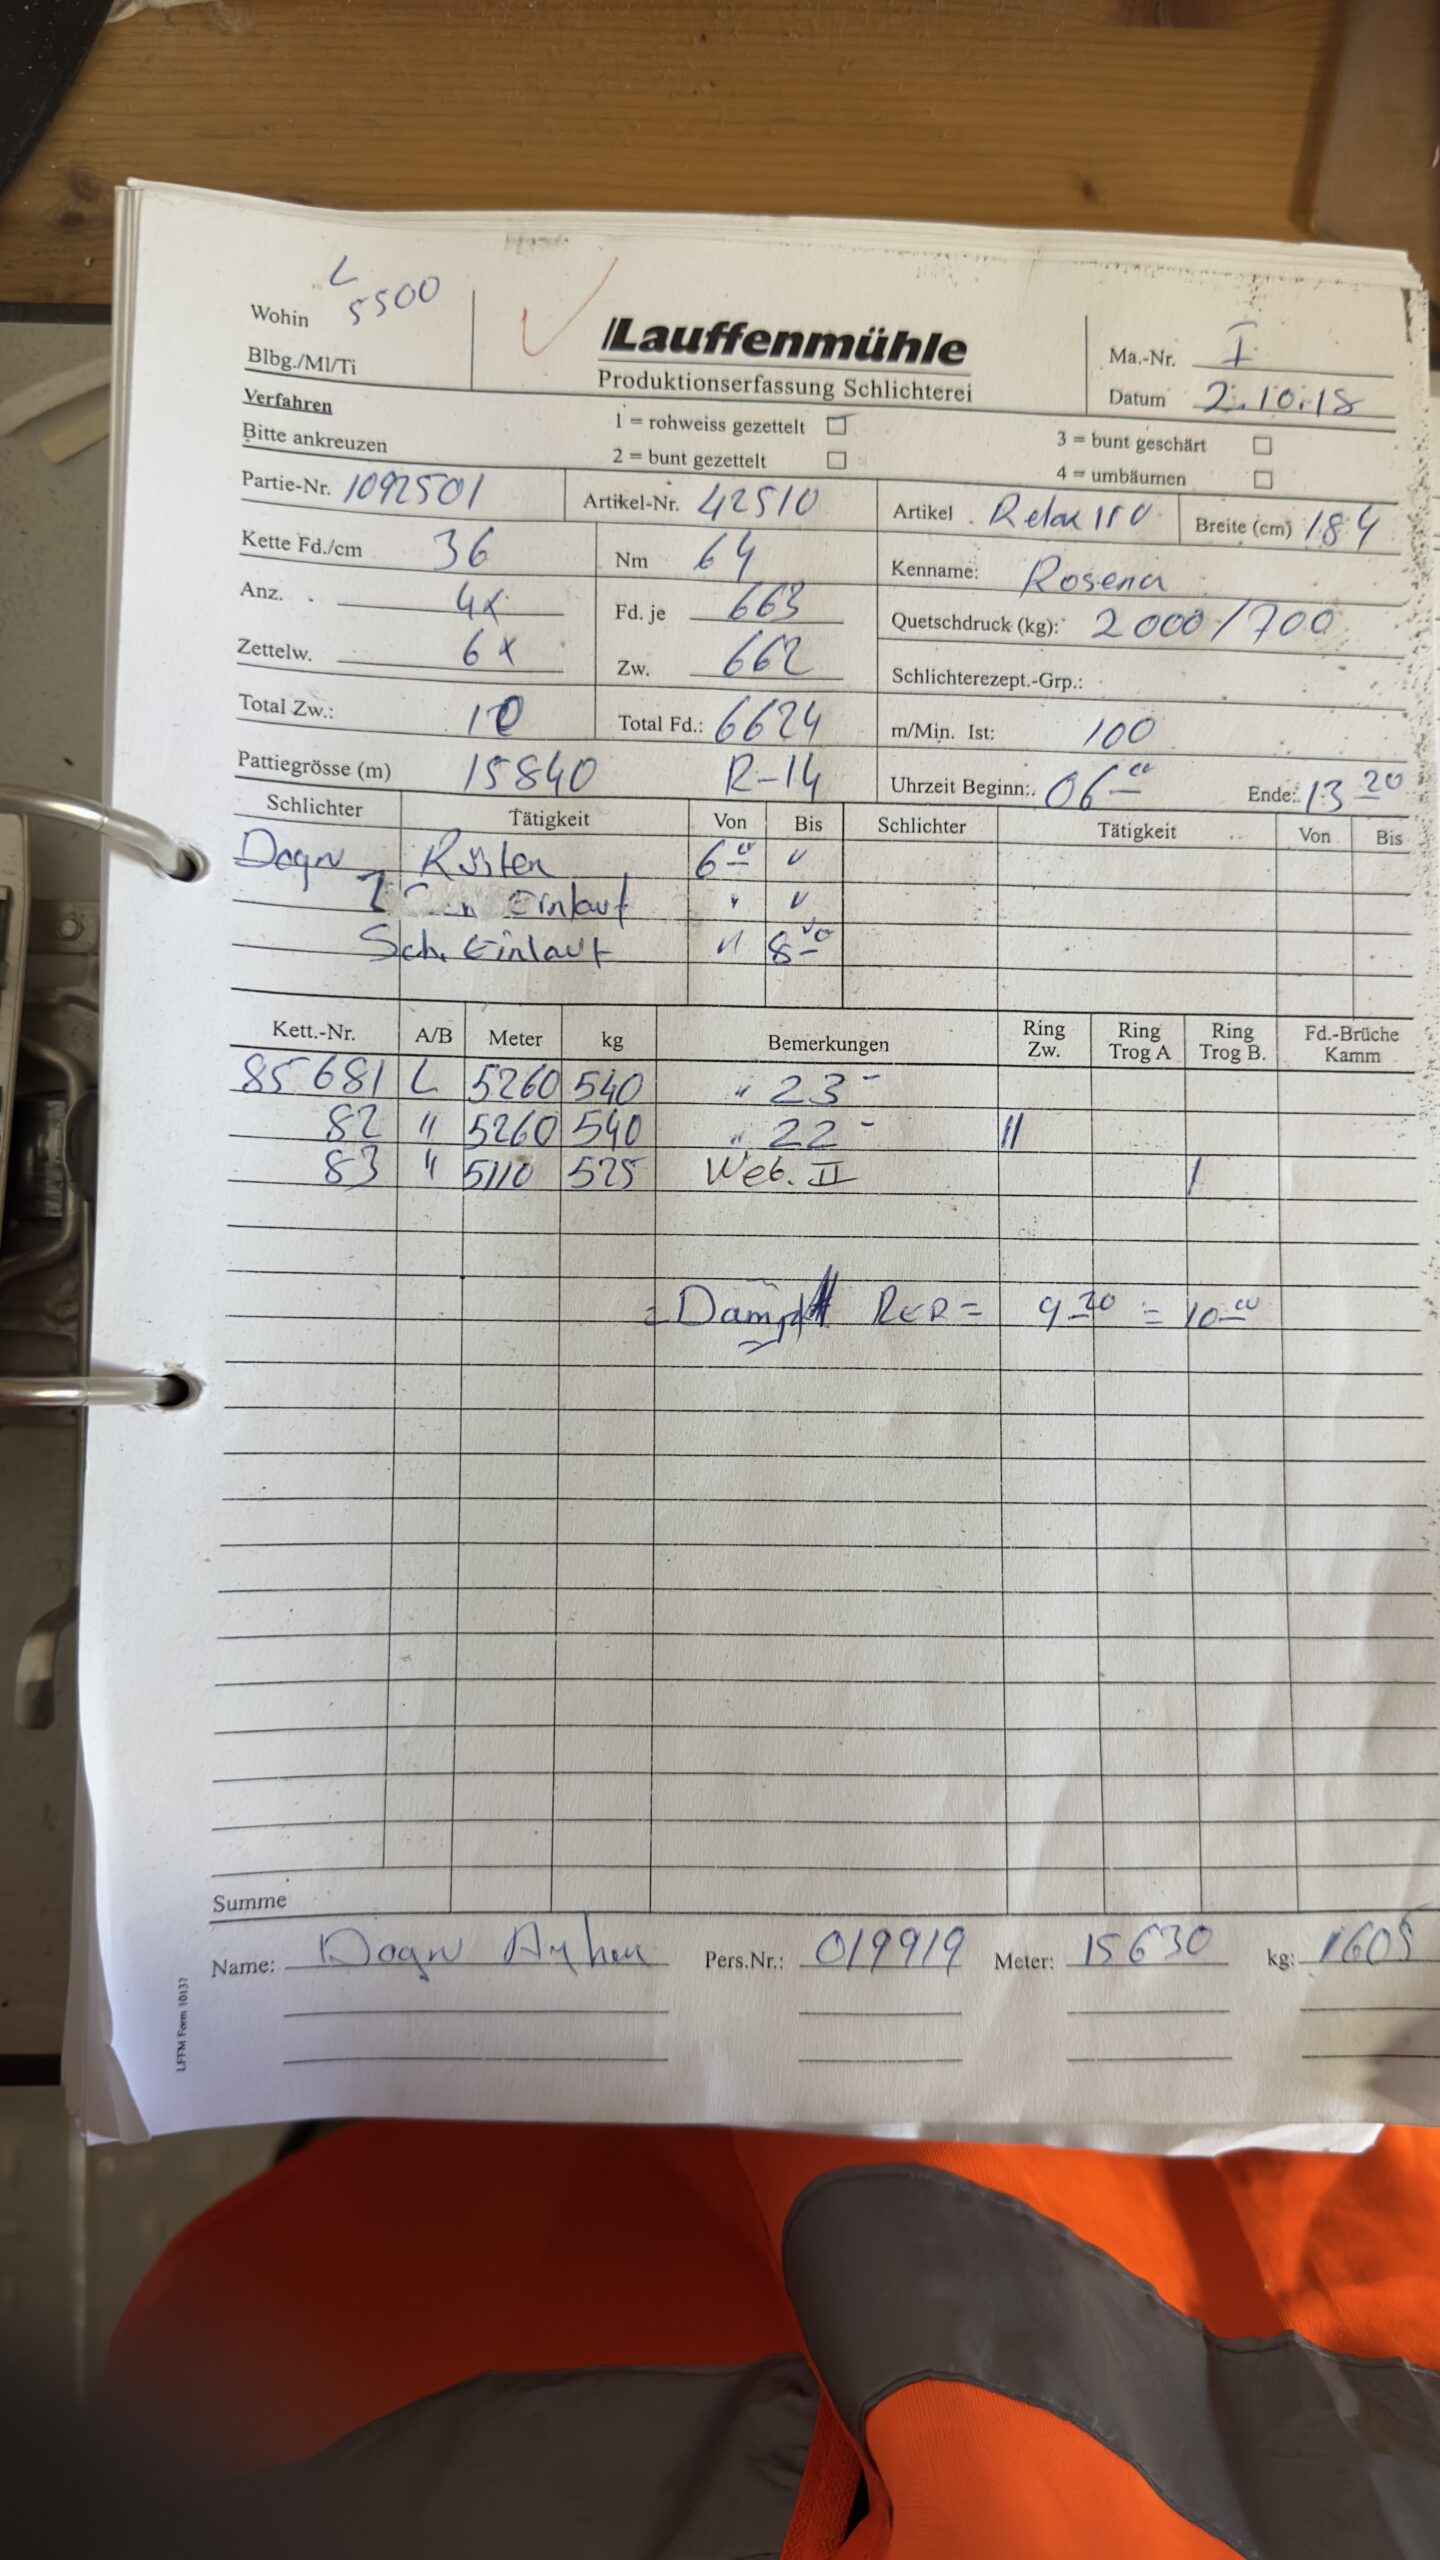 L
Wohin 5500
Blbg./Ml/Ti
Lauffenmühle
Produktionserfassung Schlichterei
Ma.-Nr. I
Datum 2.10.18
Verfahren
Bitte ankreuzen
1 = rohweiss gezettelt
2 = bunt gezettelt
3 = bunt geschärt
4 = umbäumen
Partie-Nr. 1092501 Artikel-Nr. 42510 Artikel Breite (cm) 184
Kette Fd./cm 36 Nm 64 Kenname: Rosena
Anz. 4x Fd. je 663 Quetschdruck (kg): 2000/700
Zettelw. 6x Zw. 662 Schlichterezept.-Grp.:
Total Zw.: 10 Total Fd.: 6624 m/Min. Ist: 100
Pattiegrösse (m) 15840 R-14 Uhrzeit Beginn: 06 00 Ende: 13 20
Schlichter Tätigkeit Von Bis Schlichter Tätigkeit Von Bis
Dogn Rüsten 6 00 "
Einlauf " "
Sch. Einlauf " 8
Kett.-Nr. A/B Meter kg Bemerkungen Ring Zw. Ring Trog A Ring Trog B. Fd.-Brüche Kamm
85681 L 5260 540 " 23 -
82 " 5260 540 " 22 - ||
83 " 5110 525 Web. II |
= Dampf = 9 20 = 10 00
Summe
Name: Dogn Ayhan Pers.Nr.: 019919 Meter: 15630 kg: 1605
LFFM Form 10137